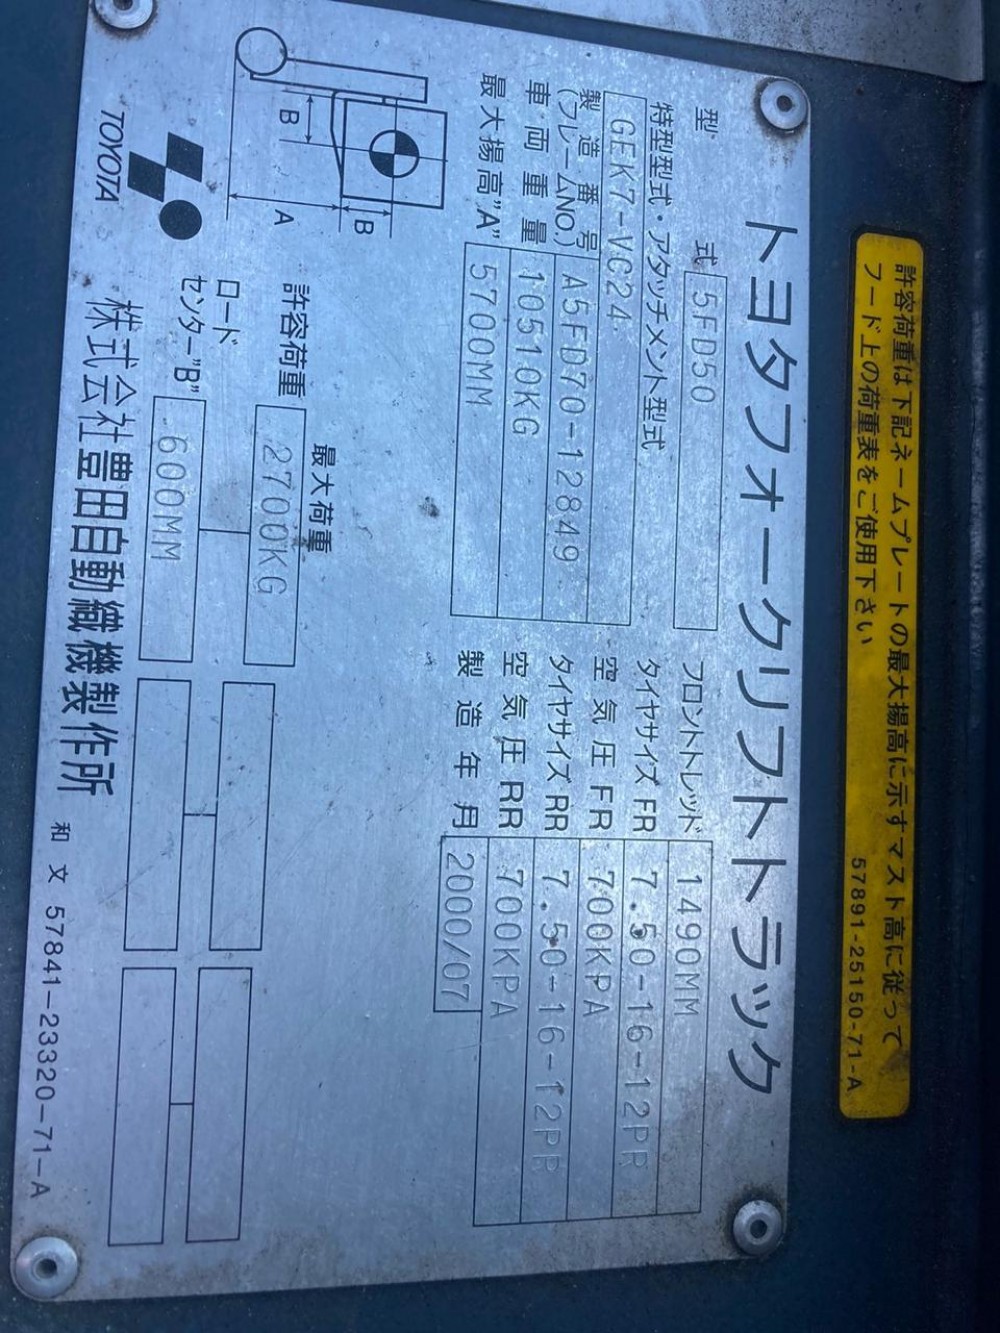 許容荷重は下記ネームプレートの最大揚高に示すマスト高に従って
フード上の荷重表をご使用下さい
57891-25150-71-A
トヨタフォークリフトトラック
型 式 5FD50
特型型式・アタッチメント型式
GEK7-VC24
製造番号
(フレームNO.) A5FD70-12849
車両重量 10510KG
最大揚高"A" 5700MM
フロントトレッド 1490MM
タイヤサイズ FR 7.50-16-12PR
空気圧 FR 700KPA
タイヤサイズ RR 7.50-16-12PR
空気圧 RR 700KPA
製造年月 2000/07
B
B
A
最大荷重
許容荷重 2700KG
ロード
センター"B" 600MM
TOYOTA
株式会社豊田自動織機製作所
和文 57841-23320-71-A